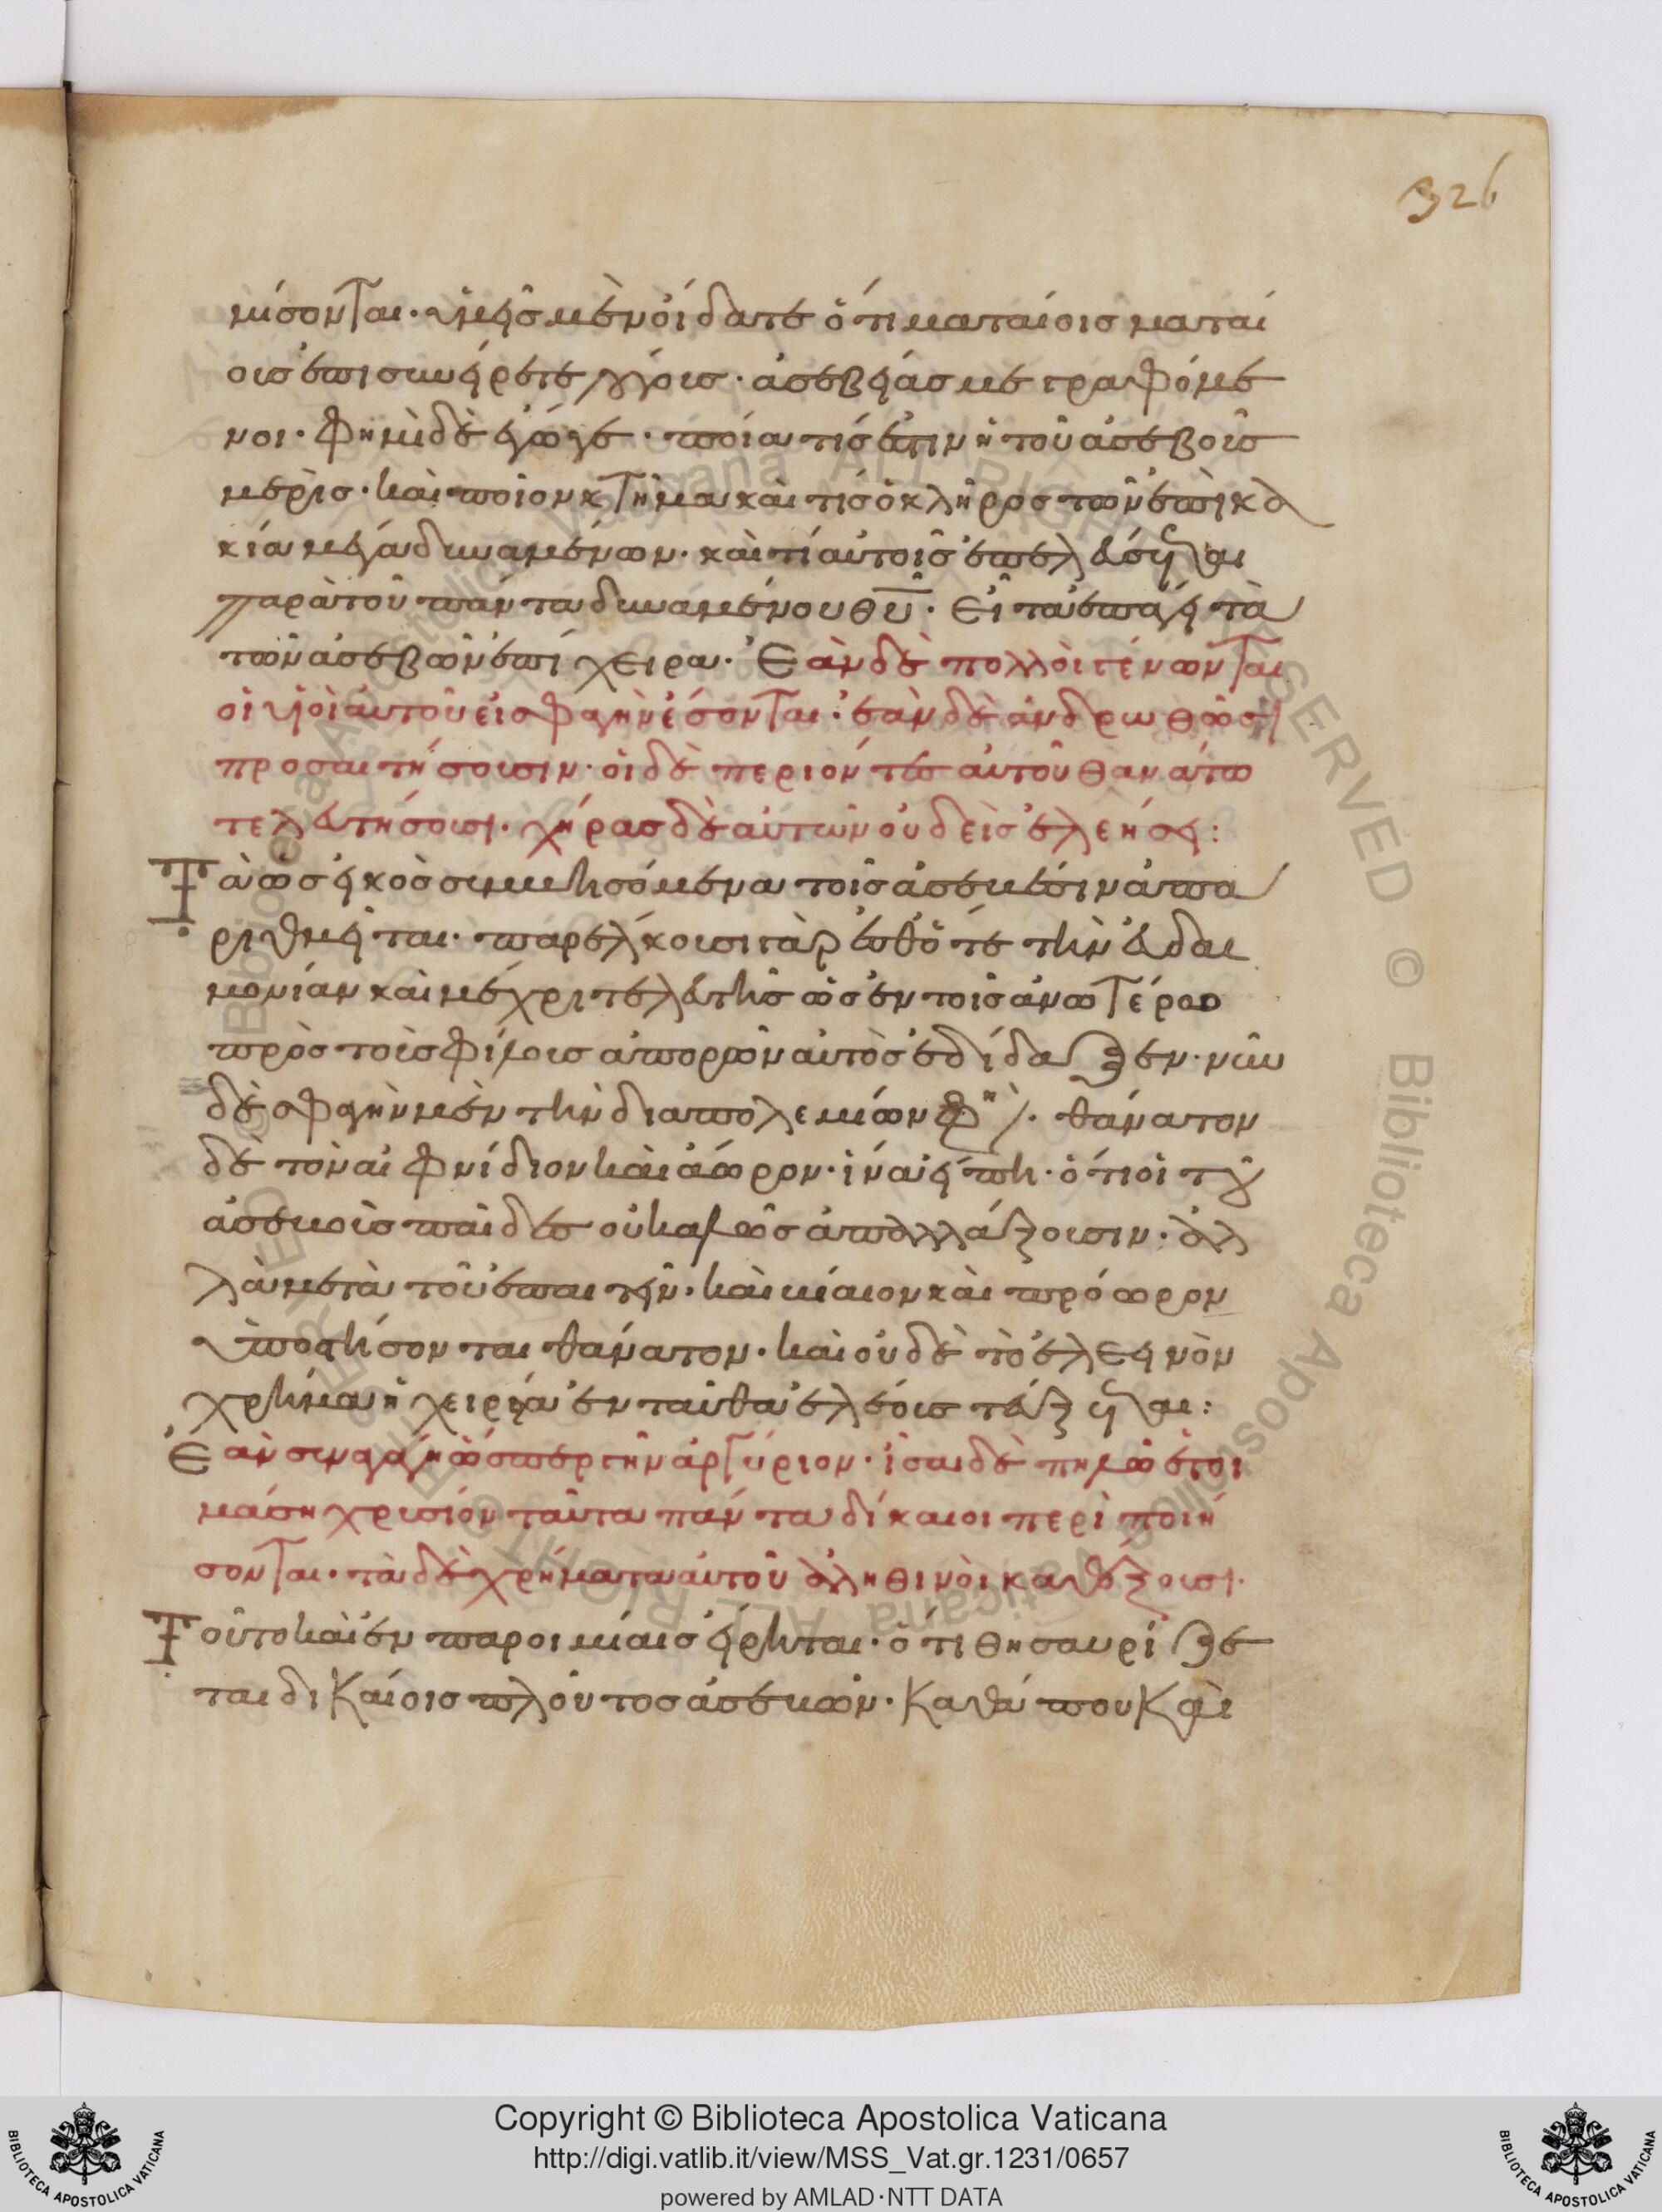 326
μίσονται· ὑμεῖς μὲν οἴδατε ὅτι ματαίοις ματαί
οις ἐπισυνείρετε λόγοις· ἀσεβείας με γραφόμε
νοι· φημὶ δὲ ἐγώγε· ποία τίς ἐστιν ἡ τοῦ ἀσεβοῦς
μερίς· καὶ ποῖον κτῆμα καὶ τίς ὁ κλῆρος τῶν ἐπὶ κα
κία μέγα δυναμένων· καὶ τί αὐτοῖς ἐπελεύσεται
παρὰ τοῦ πάντα δυναμένου θυ· Εἶτα ἐπάγει τὰ
τῶν ἀσεβῶν ἐπίχειρα· Ἐὰν δὲ πολλοὶ γένωνται
οἱ υἱοὶ αὐτοῦ εἰς σφαγὴν ἔσονται· ἐὰν δὲ ἀνδρωθῶσι
προσαιτήσουσιν· οἱ δὲ περιόντες αὐτοῦ θανάτω
τελευτήσουσι· χήρας δὲ αὐτῶν οὐδεὶς ἐλεήσει:
Τὰ ὡς εἰκὸς συμβησόμενα τοῖς ἀσεβέσιν ἀπα
ριθμεῖται· παρέλκουσι γὰρ ἔσθότε τὴν εὐδαι
μονίαν καὶ μέχρι τελευτῆς ὡς ἐν τοῖς ἀνωτέρω
πρὸς τοῖς φίλοις ἀπορῶν αὐτὸς ἐδίδαξεν· νῦν
δὲ σφαγὴν μὲν τὴν διὰ πολεμίων φη· θάνατον
δὲ τὸν αἰφνίδιον καὶ ἄωρον· ἵνα εἴπη· ὅτι οἱ τοῦ
ἀσεβοῦς παῖδες οὐ καλῶς ἀπαλλάξουσιν· ἀλ
λὰ μετὰ τοῦ ἐπαιτεῖν· καὶ βίαιον καὶ πρόωρον
ὑποστήσονται θάνατον· καὶ οὐδὲ τὸ ἐλεεινὸν
χρῆμα ἡ χειρεία ἐνταῦθα ἐλέους τεύξεται:
Ἐὰν συναγάγη ὥσπερ γῆν ἀργύριον· ἴσα δὲ πηλῶ ἑτοι
μάση χρυσίον ταῦτα πάντα δίκαιοι περιποιή
σονται· τὰ δὲ χρήματα αὐτοῦ ἀληθινοὶ καθέξουσι·
Τοῦτο καὶ ἐν παροιμίαις εἴρηται· ὅτι θησαυρίζε
ται δικαίοις πλοῦτος ἀσεβῶν· καθά που καὶ
Copyright © Biblioteca Apostolica Vaticana
http://digi.vatlib.it/view/MSS_Vat.gr.1231/0657
powered by AMLAD·NTT DATA
BIBLIOTECA APOSTOLICA VATICANA
BIBLIOTECA APOSTOLICA VATICANA